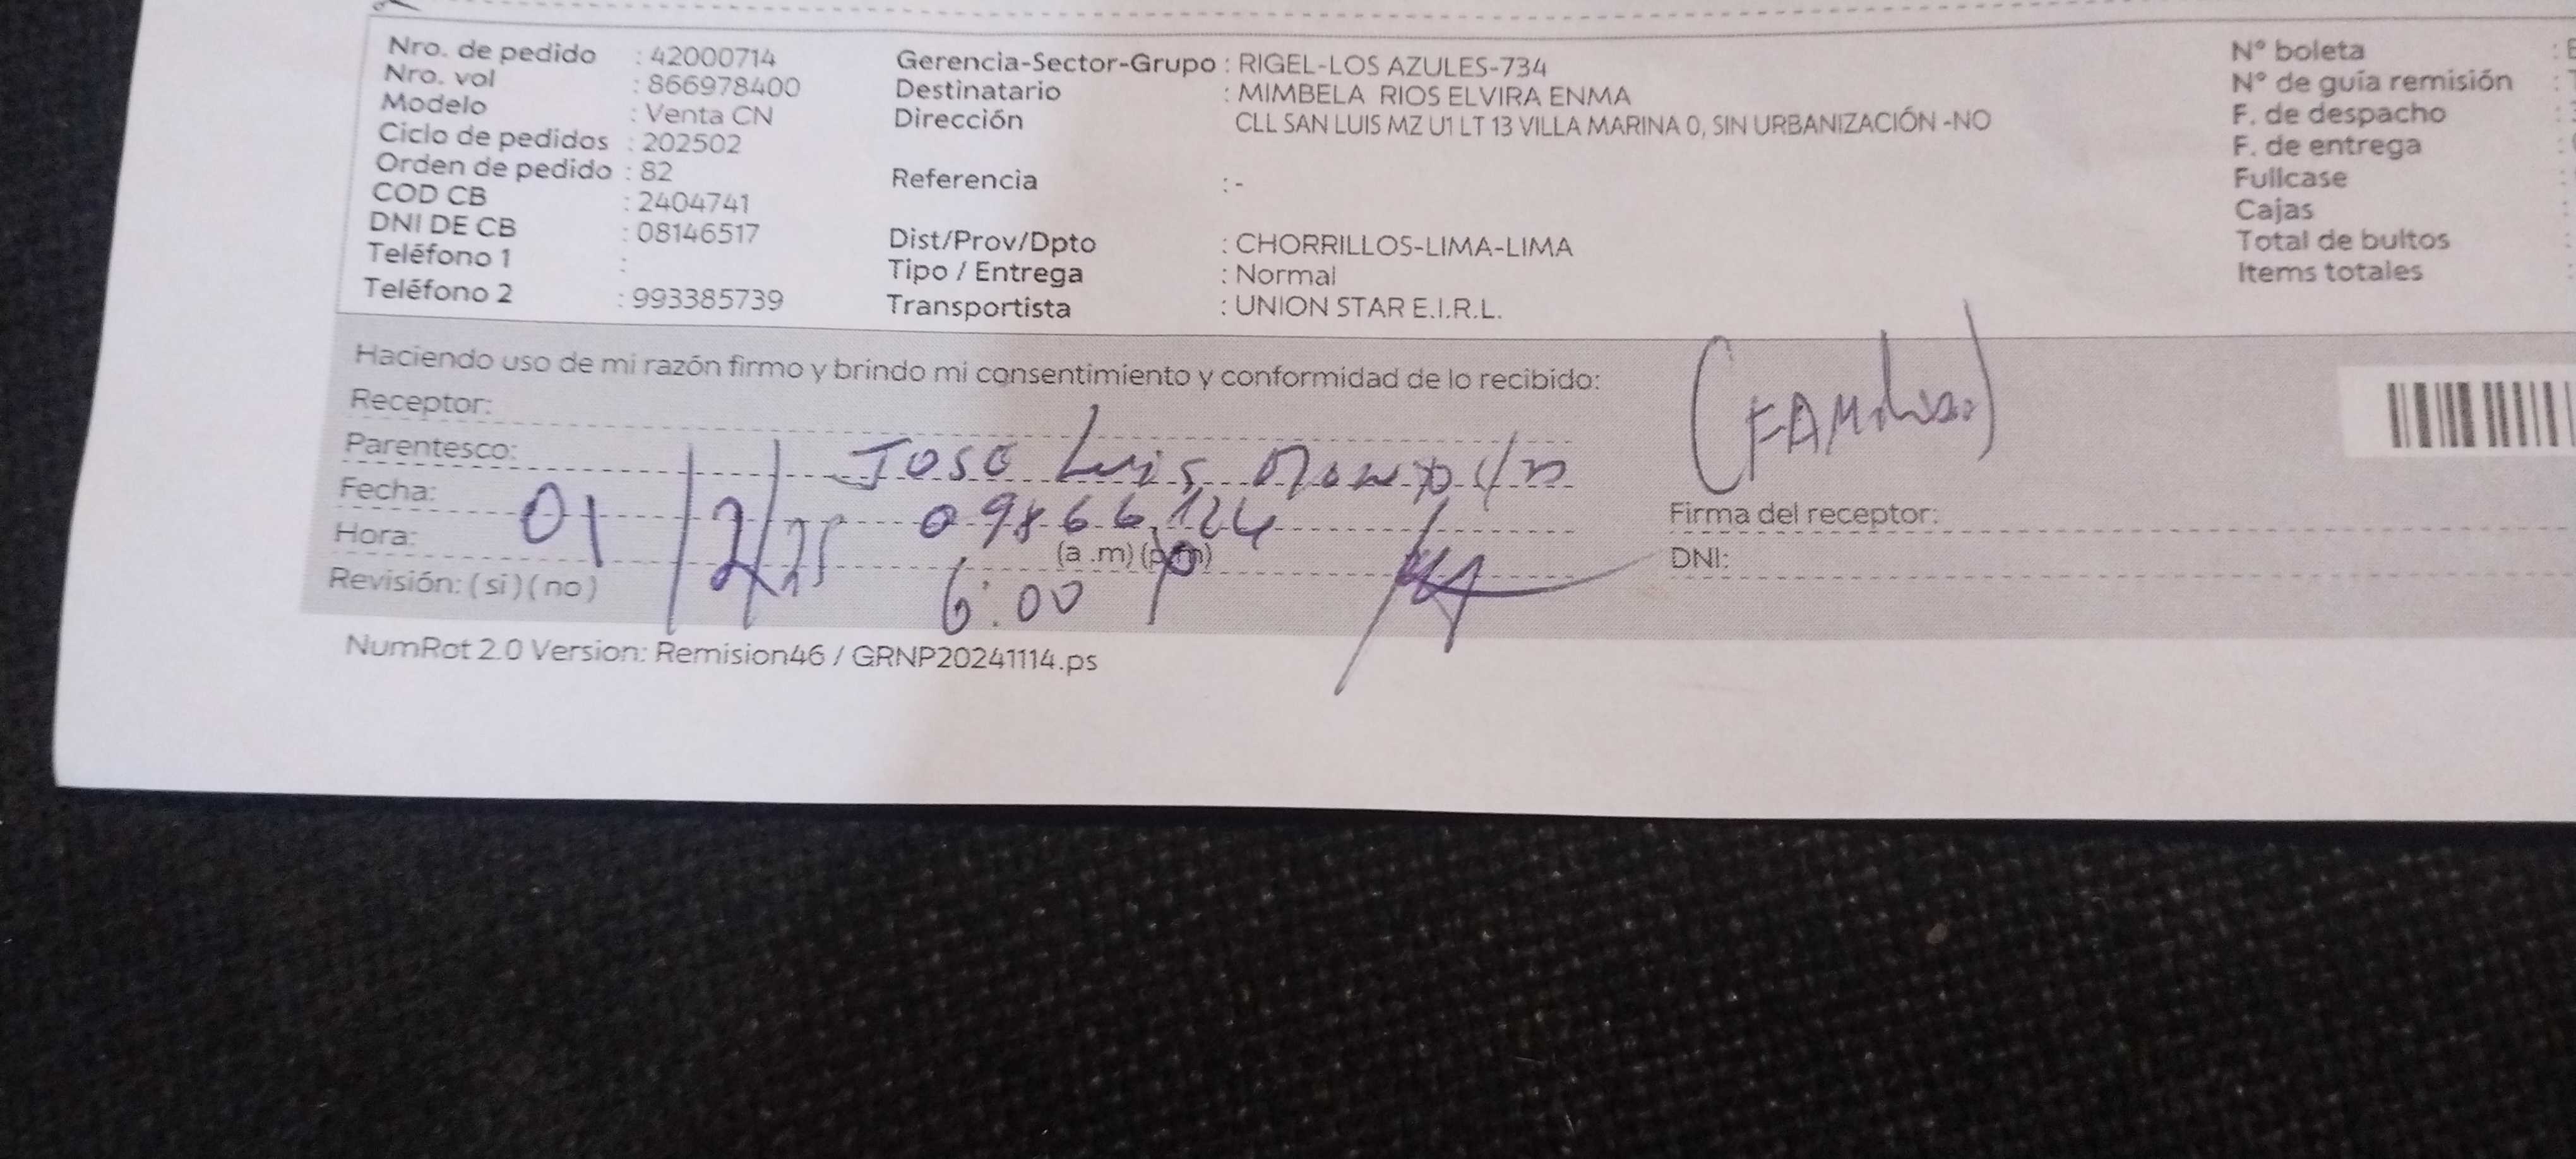 Nro. de pedido : 42000714
Nro. vol : 866978400
Modelo : Venta CN
Ciclo de pedidos : 202502
Orden de pedido : 82
COD CB : 2404741
DNI DE CB : 08146517
Teléfono 1 :
Teléfono 2 : 993385739
Gerencia-Sector-Grupo : RIGEL-LOS AZULES-734
Destinatario : MIMBELA RIOS ELVIRA ENMA
Dirección CLL SAN LUIS MZ U1 LT 13 VILLA MARINA 0, SIN URBANIZACIÓN -NO
Referencia : -
Dist/Prov/Dpto : CHORRILLOS-LIMA-LIMA
Tipo / Entrega : Normal
Transportista : UNION STAR E.I.R.L.
N° boleta :
N° de guía remisión :
F. de despacho :
F. de entrega :
Fullcase :
Cajas :
Total de bultos :
Items totales :
Haciendo uso de mi razón firmo y brindo mi consentimiento y conformidad de lo recibido:
Receptor:
Parentesco: Jose Luis
Fecha: 01/2/25 09866124
Hora: (a .m) (p.m)
6:00 p
Revisión: ( si ) ( no )
(FAMiliar)
Firma del receptor:
DNI:
NumRot 2.0 Version: Remision46 / GRNP20241114.ps